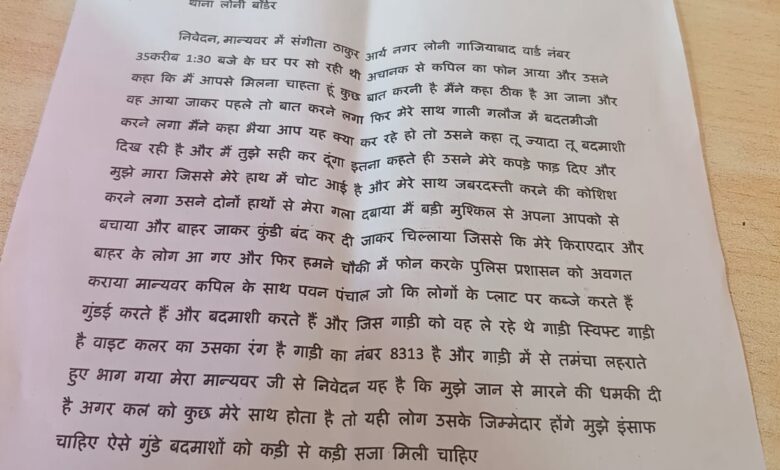 थाना लोनी बॉर्डर
निवेदन, मान्यवर में संगीता ठाकुर आर्य नगर लोनी गाजियाबाद वार्ड नंबर
35करीब 1:30 बजे के घर पर सो रही थी अचानक से कपिल का फोन आया और उसने
कहा कि मैं आपसे मिलना चाहता हूं कुछ बात करनी है मैंने कहा ठीक है आ जाना और
वह आया जाकर पहले तो बात करने लगा फिर मेरे साथ गाली गलौज में बदतमीजी
करने लगा मैंने कहा भैया आप यह क्या कर रहे हो तो उसने कहा तू ज्यादा तू बदमाशी
दिख रही है और मैं तुझे सही कर दूंगा इतना कहते ही उसने मेरे कपड़े फाड़ दिए और
मुझे मारा जिससे मेरे हाथ में चोट आई है और मेरे साथ जबरदस्ती करने की कोशिश
करने लगा उसने दोनों हाथों से मेरा गला दबाया मैं बड़ी मुश्किल से अपना आपको से
बचाया और बाहर जाकर कुंडी बंद कर दी जाकर चिल्लाया जिससे कि मेरे किराएदार और
बाहर के लोग आ गए और फिर हमने चौकी में फोन करके पुलिस प्रशासन को अवगत
कराया मान्यवर कपिल के साथ पवन पंचाल जो कि लोगों के प्लाट पर कब्जे करते हैं
गुंडई करते हैं और बदमाशी करते हैं और जिस गाड़ी को वह ले रहे थे गाड़ी स्विफ्ट गाड़ी
है वाइट कलर का उसका रंग है गाड़ी का नंबर 8313 है और गाड़ी में से तमंचा लहराते
हुए भाग गया मेरा मान्यवर जी से निवेदन यह है कि मुझे जान से मारने की धमकी दी
है अगर कल को कुछ मेरे साथ होता है तो यही लोग उसके जिम्मेदार होंगे मुझे इंसाफ
चाहिए ऐसे गुंडे बदमाशों को कड़ी से कड़ी सजा मिली चाहिए